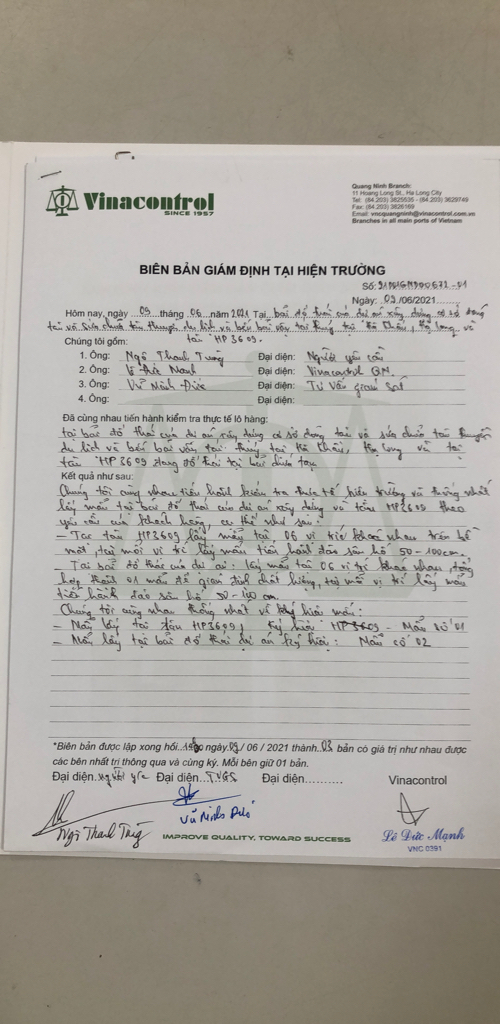 Vinacontrol
SINCE 1957
Quang Ninh Branch:
11 Hoang Long St., Ha Long City
Tel: (84.203) 3825535 - (84.203) 3829749
Fax: (84.203) 3826169
Email: vncquangninh@vinacontrol.com.vn
Branches in all main ports of Vietnam
BIÊN BẢN GIÁM ĐỊNH TẠI HIỆN TRƯỜNG
Số:
Ngày: 09/06/2021
Hôm nay, ngày 09 tháng 06 năm 2021 Tại bãi đổ thải của dự án xây dựng cơ sở đóng
tàu và sửa chữa tàu thuyền du lịch và bến bãi vật tại Hà Khẩu, Hạ Long và
tàu HP 3609.
Chúng tôi gồm:
1. Ông: Ngô Thanh Tùng Đại diện: Người yêu cầu
2. Ông: Lê Đức Mạnh Đại diện: Vinacontrol Q.N.
3. Ông: Vũ Minh Đức Đại diện: Tư vấn giám sát
4. Ông: Đại diện:
Đã cùng nhau tiến hành kiểm tra thực tế lô hàng:
tại bãi đổ thải của dự án xây dựng cơ sở đóng tàu và sửa chữa tàu thuyền
du lịch và bến bãi vật tại Hà Khẩu, Hạ Long và tại
tàu HP3609 đang đổ thải tại
Kết quả như sau:
Chúng tôi cùng nhau tiến hành kiểm tra thực tế hiện trường và thống nhất
lấy mẫu tại bãi đổ thải của dự án xây dựng và tàu HP3609 theo
yêu cầu của khách hàng, cụ thể như sau:
- Tại tàu HP3609 lấy mẫu tại 06 vị trí khác nhau trên bề
mặt, tại mỗi vị trí lấy mẫu tiến hành đào sâu hố 50-100cm.
- Tại bãi đổ thải của dự án: lấy mẫu tại 06 vị trí khác nhau, tổng
hợp thành 01 mẫu để giám định chất lượng, tại mỗi vị trí lấy mẫu
tiến hành đào sâu hố cm
Chúng tôi cùng nhau thống nhất về ký hiệu mẫu:
- Mẫu lấy tại tàu HP3609, ký hiệu HP3609 - Mẫu số 01
- Mẫu lấy tại bãi đổ thải dự án ký hiệu: Mẫu số 02
*Biên bản được lập xong hồi ngày 09/ 06 / 2021 thành 03 bản có giá trị như nhau được
các bên nhất trí thông qua và cùng ký. Mỗi bên giữ 01 bản.
Đại diện Người y/c Đại diện TVGS Đại diện.......... Vinacontrol
Ngô Thanh Tùng
Vũ Minh Đức
Lê Đức Mạnh
VNC 0391
IMPROVE QUALITY, TOWARD SUCCESS